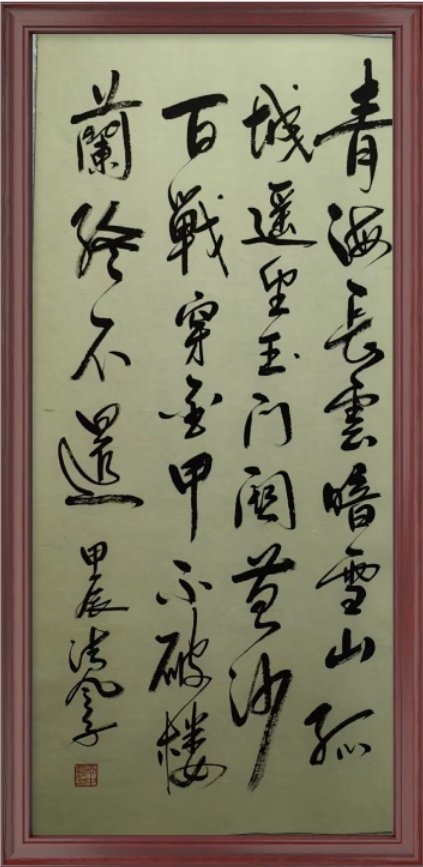 青海長雲暗雪山孤
城遥望玉门關黄沙
百戰穿金甲不破楼
蘭终不還
甲辰清风子